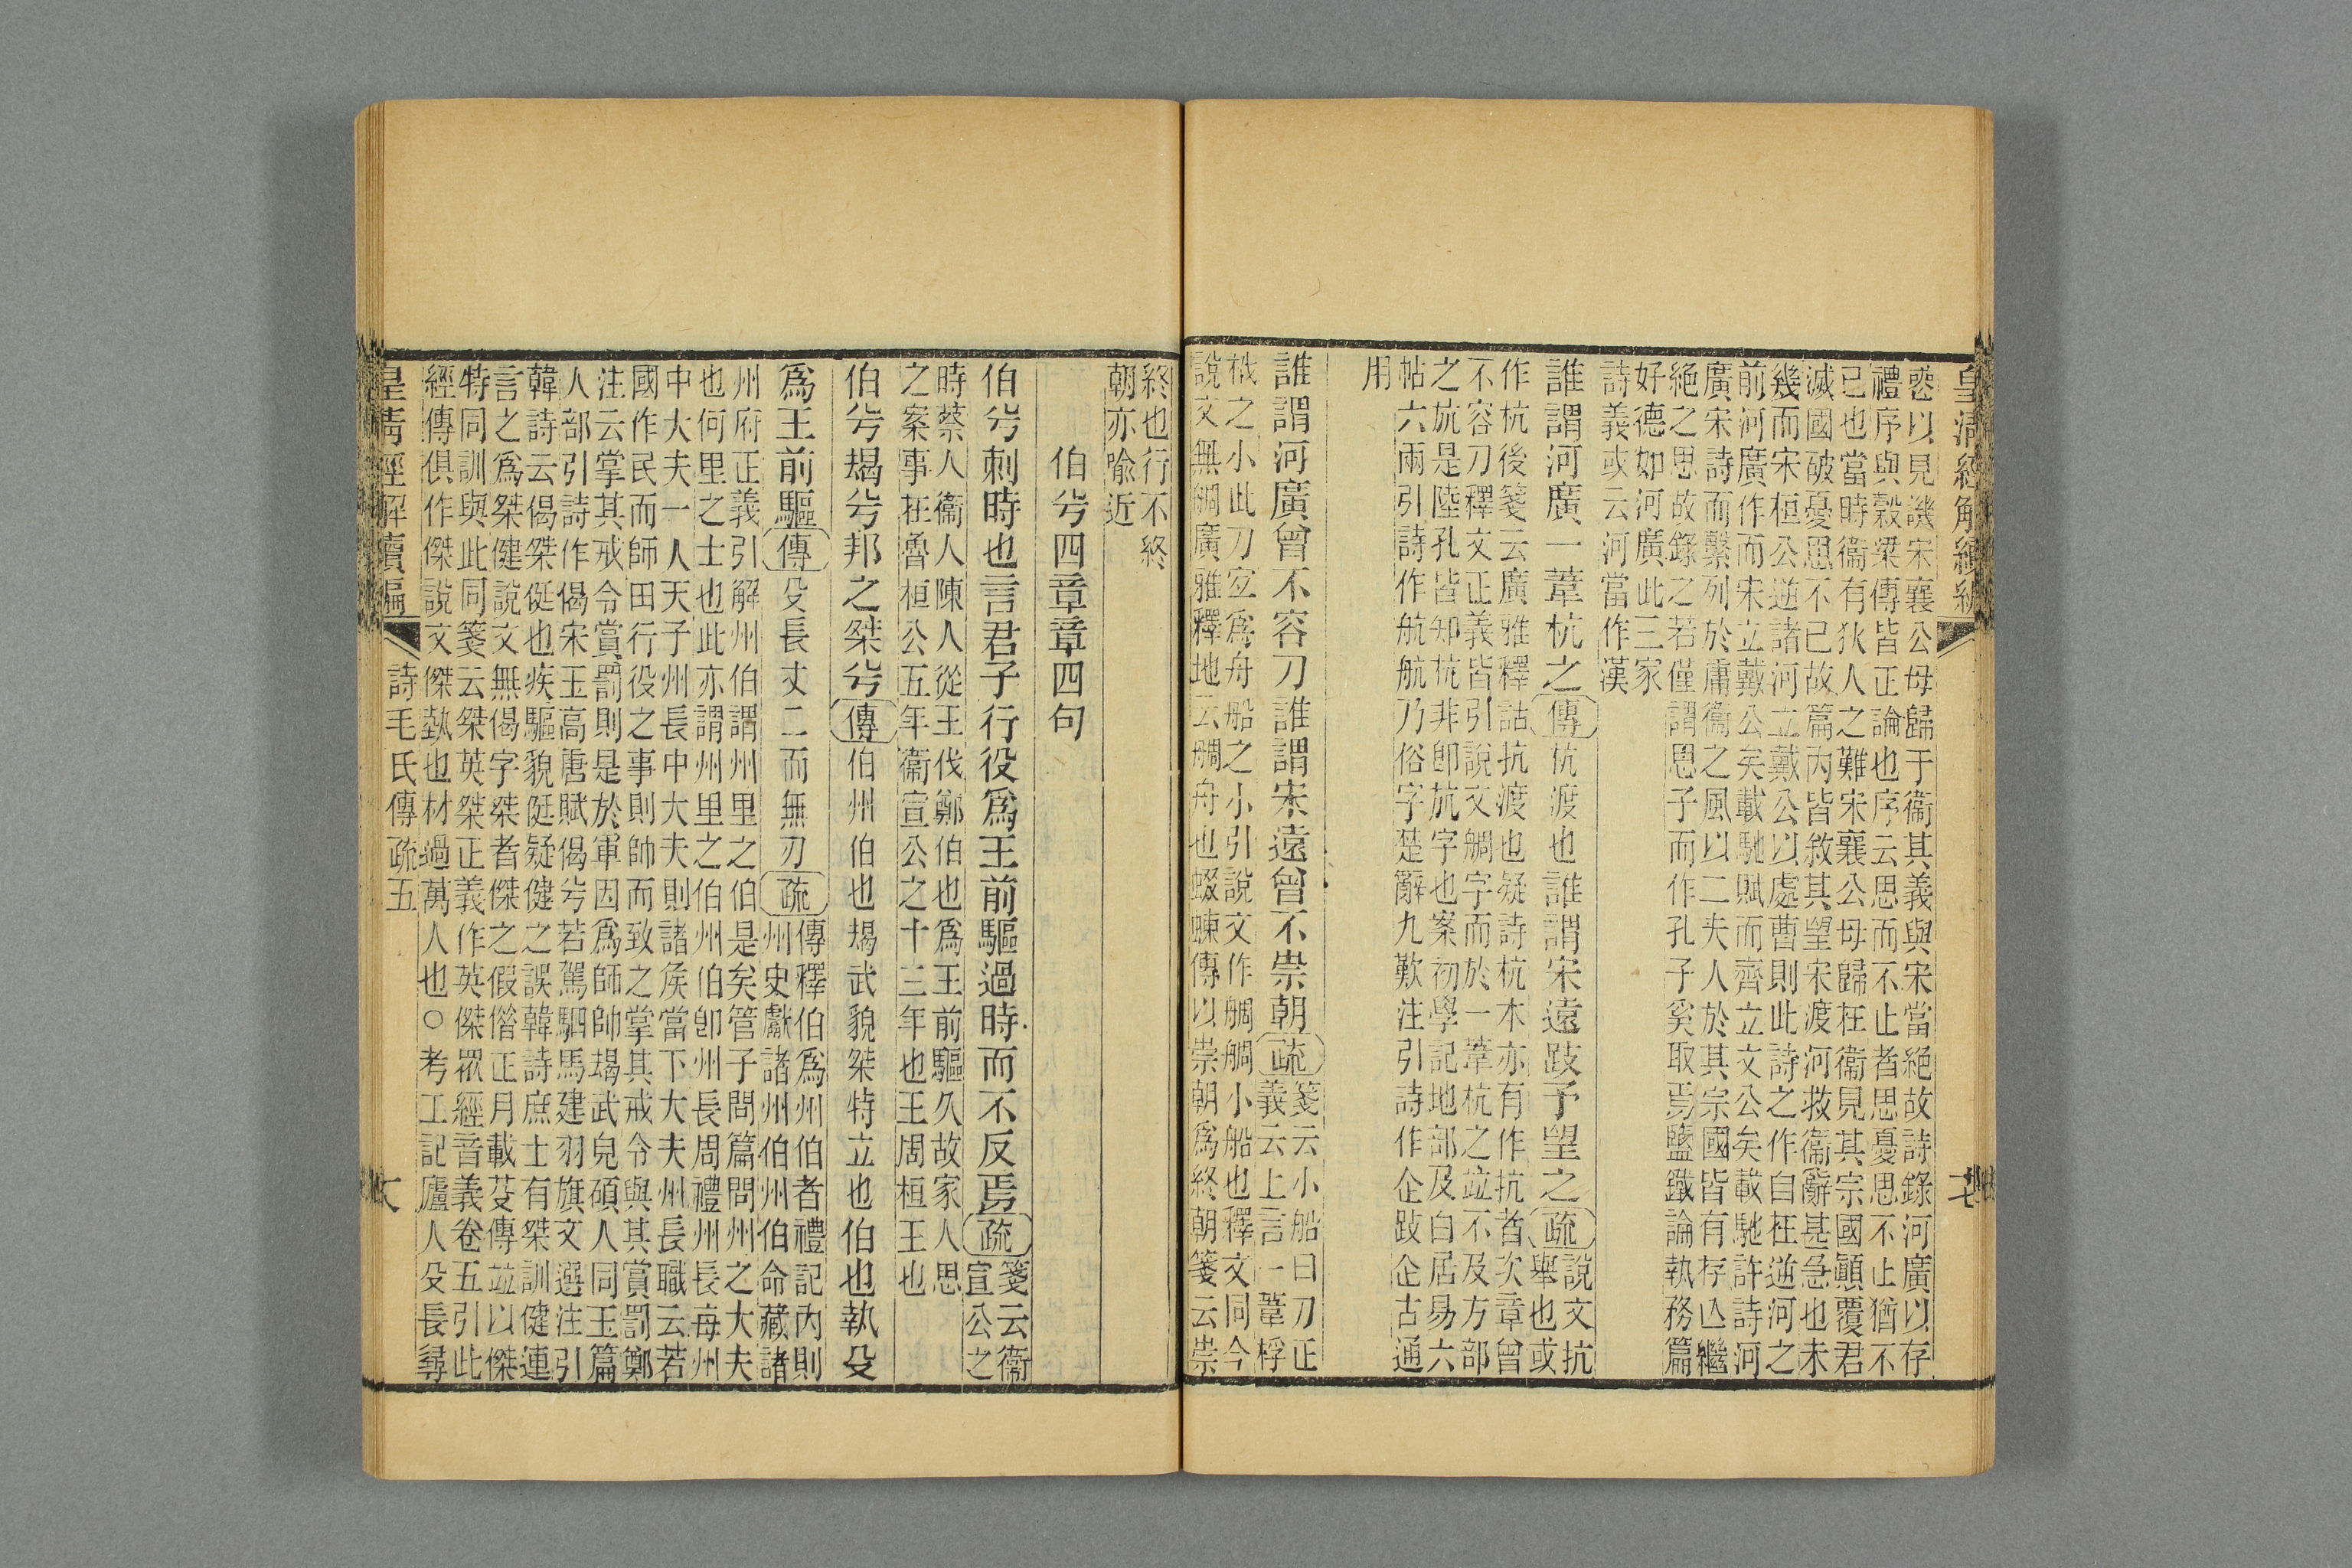 皇清經解續編
愆以見譏宋襄公母歸于衞其義與宋當絕故詩錄河廣以存
禮序與穀梁傳皆正論也序云思而不止者思憂思不止猶不
已也當時衞有狄人之難宋襄公母歸在衞見其宗國顚覆君
滅國破憂思不已故篇內皆敘其望宋渡河救衞辭甚急也未
幾而宋桓公逆諸河立戴公以處曹則此詩之作自在逆河之
前河廣作而宋立戴公矣載馳賦而齊立文公矣載馳許詩河
廣宋詩而繫列於鄘衞之風以二夫人於其宗國皆有存亾繼
絕之思故錄之若僅謂思子而作孔子奚取焉鹽鐵論執務篇
好德如河廣此三家
詩義或云河當作漢
誰謂河廣一葦杭之傳杭渡也誰謂宋遠跂予望之疏說文抗
舉也或
作杭後箋云廣雅釋詁抗渡也疑詩杭本亦有作抗者次章曾
不容刀釋文正義皆引說文䑠字而於一葦杭之竝不及方部
之斻是陸孔皆知杭非卽斻字也案初學記地部及白居易六
帖六兩引詩作航航乃俗字楚辭九歎注引詩作企跂企古通
用
誰謂河廣曾不容刀誰謂宋遠曾不崇朝疏箋云小船曰刀正
義云上言一葦桴
栰之小此刀宐爲舟船之小引說文作䑠䑠小船也釋文同今
說文無䑠廣雅釋地云䑠舟也蝃蝀傳以崇朝爲終朝箋云崇
終也行不終
朝亦喻近
伯兮四章章四句
伯兮刺時也言君子行役爲王前驅過時而不反焉疏箋云衞
宣公之
時蔡人衞人陳人從王伐鄭伯也爲王前驅久故家人思
之案事在魯桓公五年衞宣公之十三年也王周桓王也
伯兮朅兮邦之桀兮傳伯州伯也朅武貌桀特立也伯也執殳
爲王前驅傳殳長丈二而無刃疏傳釋伯爲州伯者禮記內則
州史獻諸州伯州伯命藏諸
州府正義引解州伯謂州里之伯是矣管子問篇問州之大夫
也何里之士也此亦謂州里之伯州伯卽州長周禮州長每州
中大夫一人天子州長中大夫則諸矦當下大夫州長職云若
國作民而師田行役之事則帥而致之掌其戒令與其賞罰鄭
注云掌其戒令賞罰則是於軍因爲師帥朅武皃碩人同玉篇
人部引詩作偈宋玉高唐賦偈兮若駕駟馬建羽旗文選注引
韓詩云偈桀侹也疾驅貌侹疑健之誤韓詩庶士有桀訓健連
言之爲桀健說文無偈字桀者傑之假偕正月載芟傳竝以傑
特同訓與此同箋云桀英桀正義作英傑眾經音義卷五引此
經傳俱作傑說文傑埶也材過萬人也○考工記廬人殳長尋
皇淸經解續編
詩毛氏傳疏五